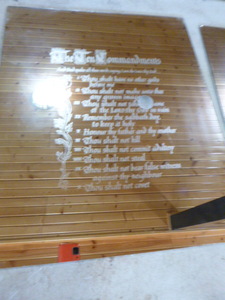 The Ten Commandments
Thou shalt have no other gods
before me
Thou shalt not make unto thee
any graven image
Thou shalt not take the name
of the Lord thy God in vain
Remember the sabbath day,
to keep it holy
Honour thy father and thy mother
Thou shalt not kill
Thou shalt not commit adultery
Thou shalt not steal
Thou shalt not bear false witness
against thy neighbour
Thou shalt not covet